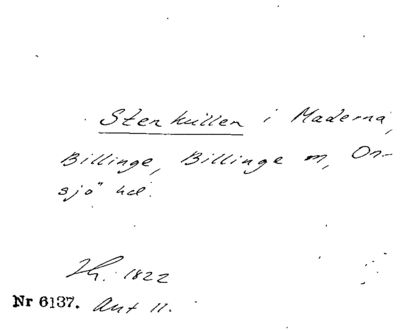 Stenkullen i Maderna,
Billinge, Billinge m, On-
sjö hd.
Th. 1822
Nr 6137. Akt 11.